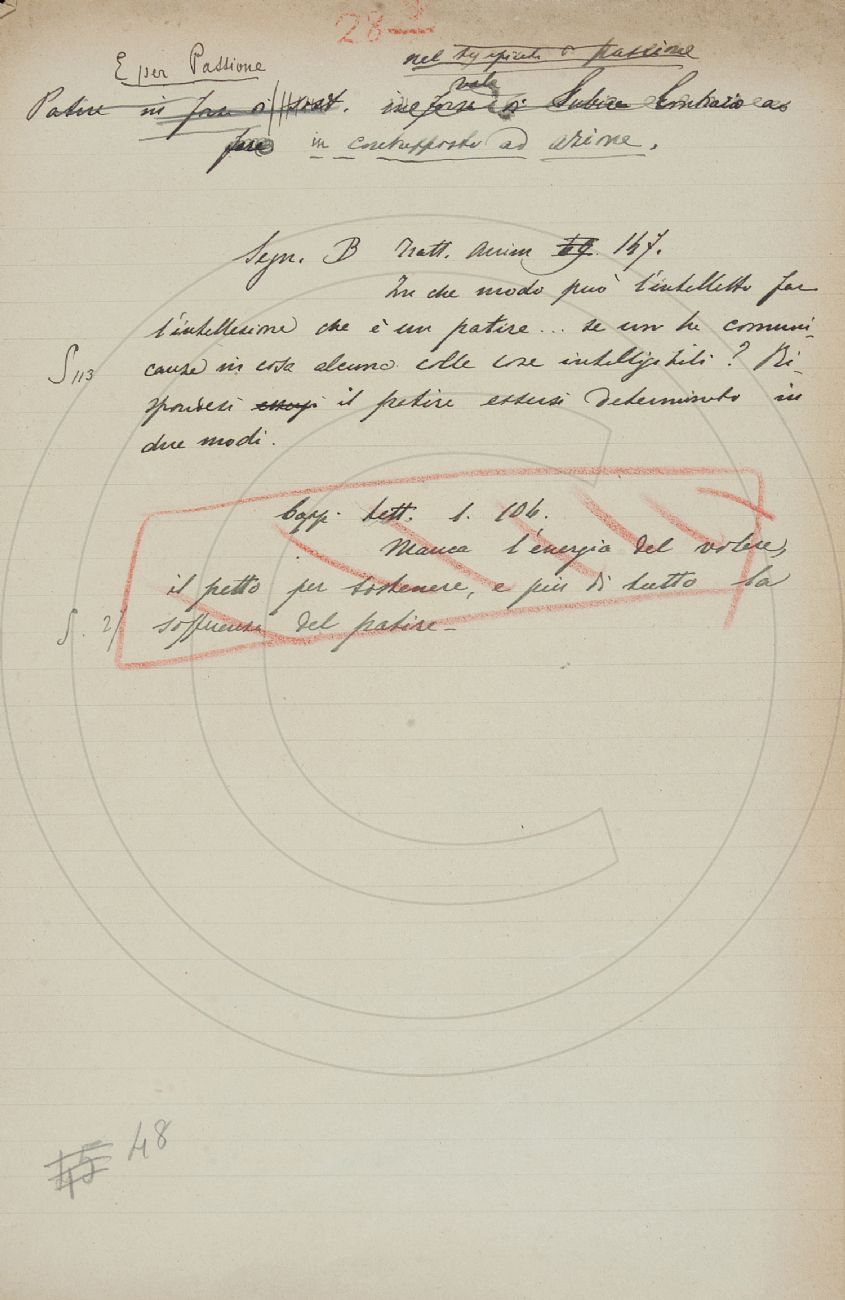 28
E per Passione
nel significato di passione
vale
Patire in forza di Sost. in forza di Subire Contrario a
fare in contrapposto ad azione.
Segn. B Tratt. Anim 147.
In che modo può l'intelletto far
l'intellezione che è un patire... se un ha comuni-
S 113
canza in cosa alcuna colle cose intelligibili? Ri-
spondesi il patire essersi determinato in
due modi.
Capp. Lett. 1. 104.
Manca l'energia del volere,
il petto per sostenere, e più di tutto la
S. 21
sofferenza del patire -
45 48